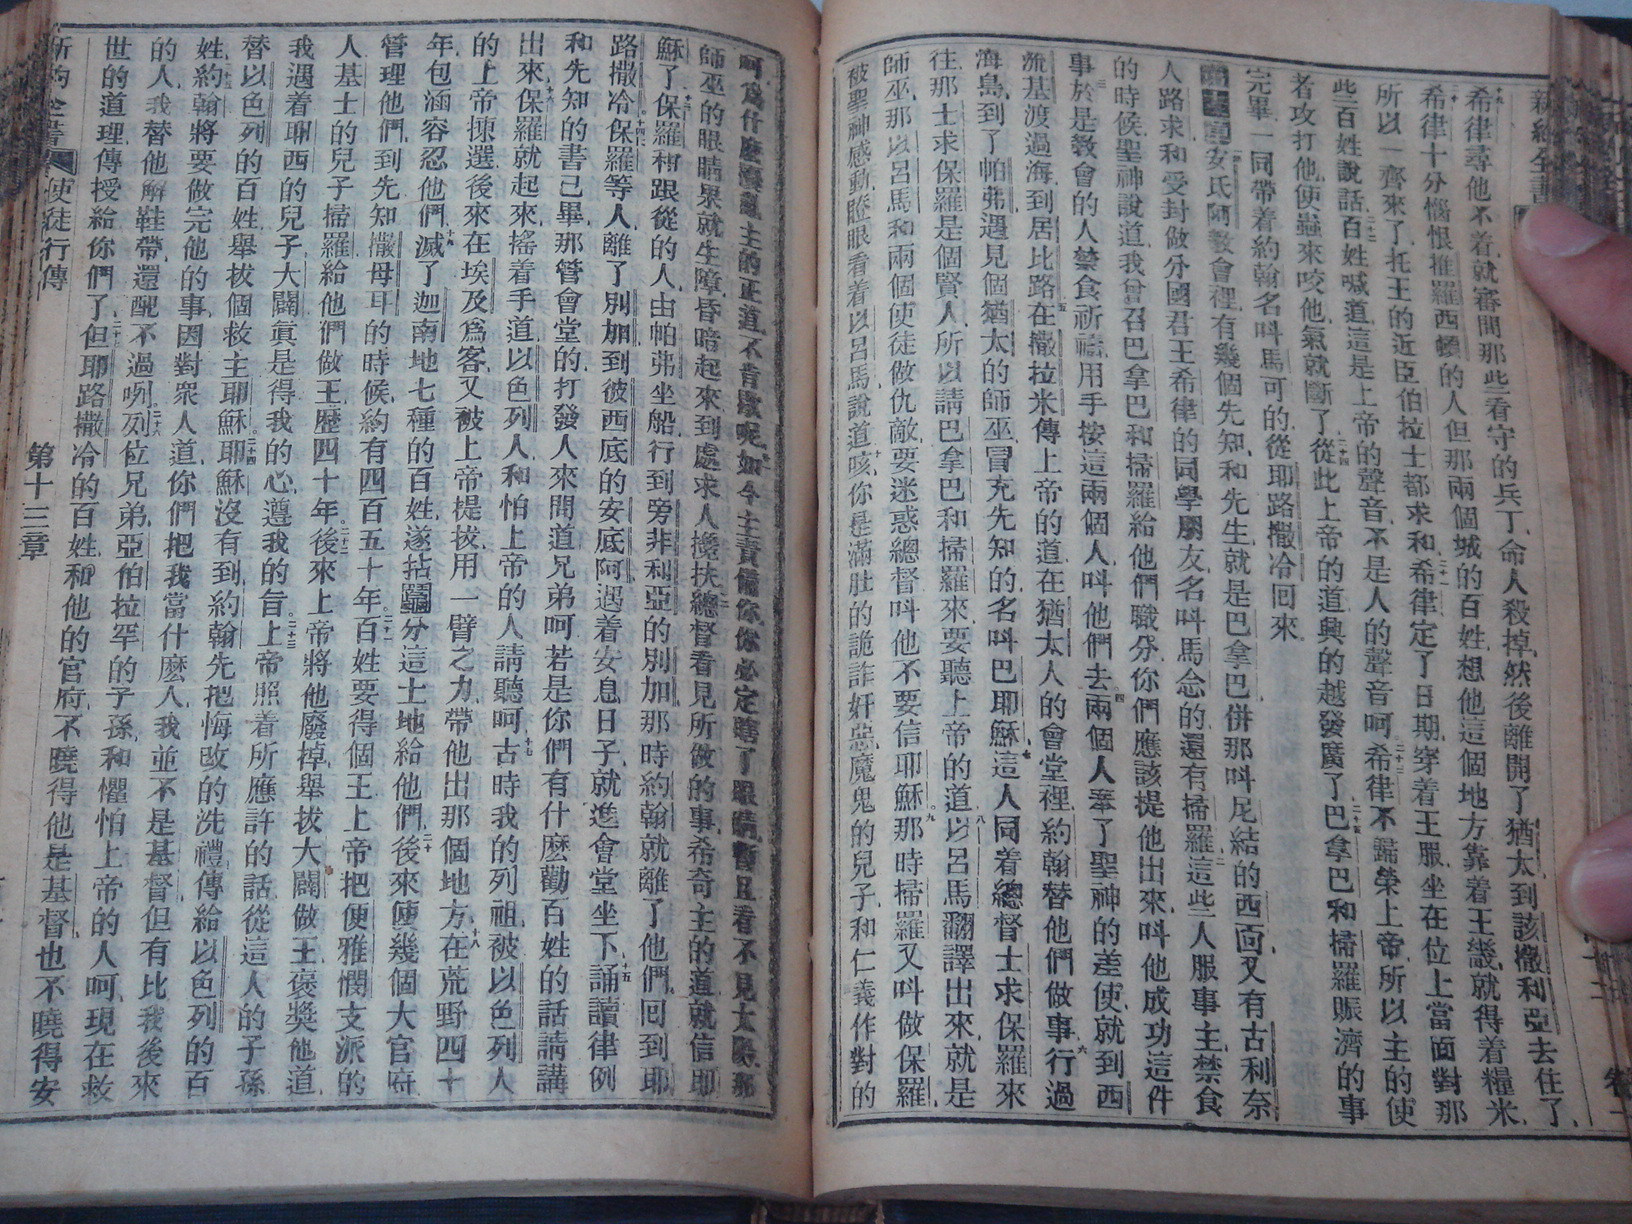 新約全書
希律尋他不着就審問那些看守的兵丁命人殺掉然後離開了猶太到該撒利亞去住了
希律十分惱恨推羅西頓的人但那兩個城的百姓想他這個地方靠着王幾就得着糧米
所以一齊來了托王的近臣伯拉士都求和希律定了日期穿着王服坐在位上當面對那
些百姓說話百姓喊道這是上帝的聲音不是人的聲音呵希律不歸榮上帝所以主的使
者攻打他便蟲來咬他氣就斷了從此上帝的道興的越發廣了巴拿巴和掃羅賑濟的事
完畢一同帶着約翰名呌馬可的從耶路撒冷回來
安氏阿教會裡有幾個先知和先生就是巴拿巴併那呌尼結的西面又有古利奈
人路求和受封做分國君王希律的同學朋友名呌馬念的還有掃羅這些人服事主禁食
的時候聖神說道我曾召巴拿巴和掃羅給他們職分你們應該提他出來呌他成功這件
事於是教會的人禁食祈禱用手按這兩個人呌他們去兩個人奉了聖神的差使就到西
流基渡過海到居比路在撒拉米傳上帝的道在猶太人的會堂裡約翰替他們做事行過
海島到了帕弗遇見個猶太的師巫冒充先知的名呌巴耶穌這人同着總督士求保羅來
往那士求保羅是個賢人所以請巴拿巴和掃羅來要聽上帝的道以呂馬翻譯出來就是
師巫那以呂馬和兩個使徒做仇敵要迷惑總督呌他不要信耶穌那時掃羅又呌做保羅
被聖神感動瞪眼看着以呂馬說道咳你是滿肚的詭詐奸惡魔鬼的兒子和仁義作對的
呵爲什麽攪亂主的正道不肯歇呢如今主責備你你必定瞎了眼睛暫且看不見太陽那
師巫的眼睛果就生障昏暗起來到處求人攙扶總督看見所做的事希奇主的道就信耶
穌了保羅和跟從的人由帕弗坐船行到旁非利亞的別加那時約翰就離了他們回到耶
路撒冷保羅等人離了別加到彼西底的安底阿遇着安息日子就進會堂坐下誦讀律例
和先知的書已畢那管會堂的打發人來問道兄弟呵若是你們有什麽勸百姓的話請講
出來保羅就起來搖着手道以色列人和怕上帝的人請聽呵古時我的列祖被以色列人
的上帝揀選後來在埃及爲客又被上帝提拔用一臂之力帶他出那個地方在荒野四十
年包涵容忍他們滅了迦南地七種的百姓遂拈鬮分這土地給他們後來使幾個大官府
管理他們到先知撒母耳的時候約有四百五十年百姓要得個王上帝把便雅憫支派的
人基士的兒子掃羅給他們做王歷四十年後來上帝將他廢掉舉拔大闢做王褒獎他道
我遇着耶西的兒子大闢眞是得我的心遵我的旨上帝照着所應許的話從這人的子孫
替以色列的百姓舉拔個救主耶穌耶穌沒有到約翰先把悔改的洗禮傳給以色列的百
姓約翰將要做完他的事因對衆人道你們把我當什麽人我並不是基督但有比我後來
的人我替他解鞋帶還配不過咧列位兄弟亞伯拉罕的子孫和懼怕上帝的人呵現在救
世的道理傳授給你們了但耶路撒冷的百姓和他的官府不曉得他是基督也不曉得安
新約全書 使徒行傳 第十三章